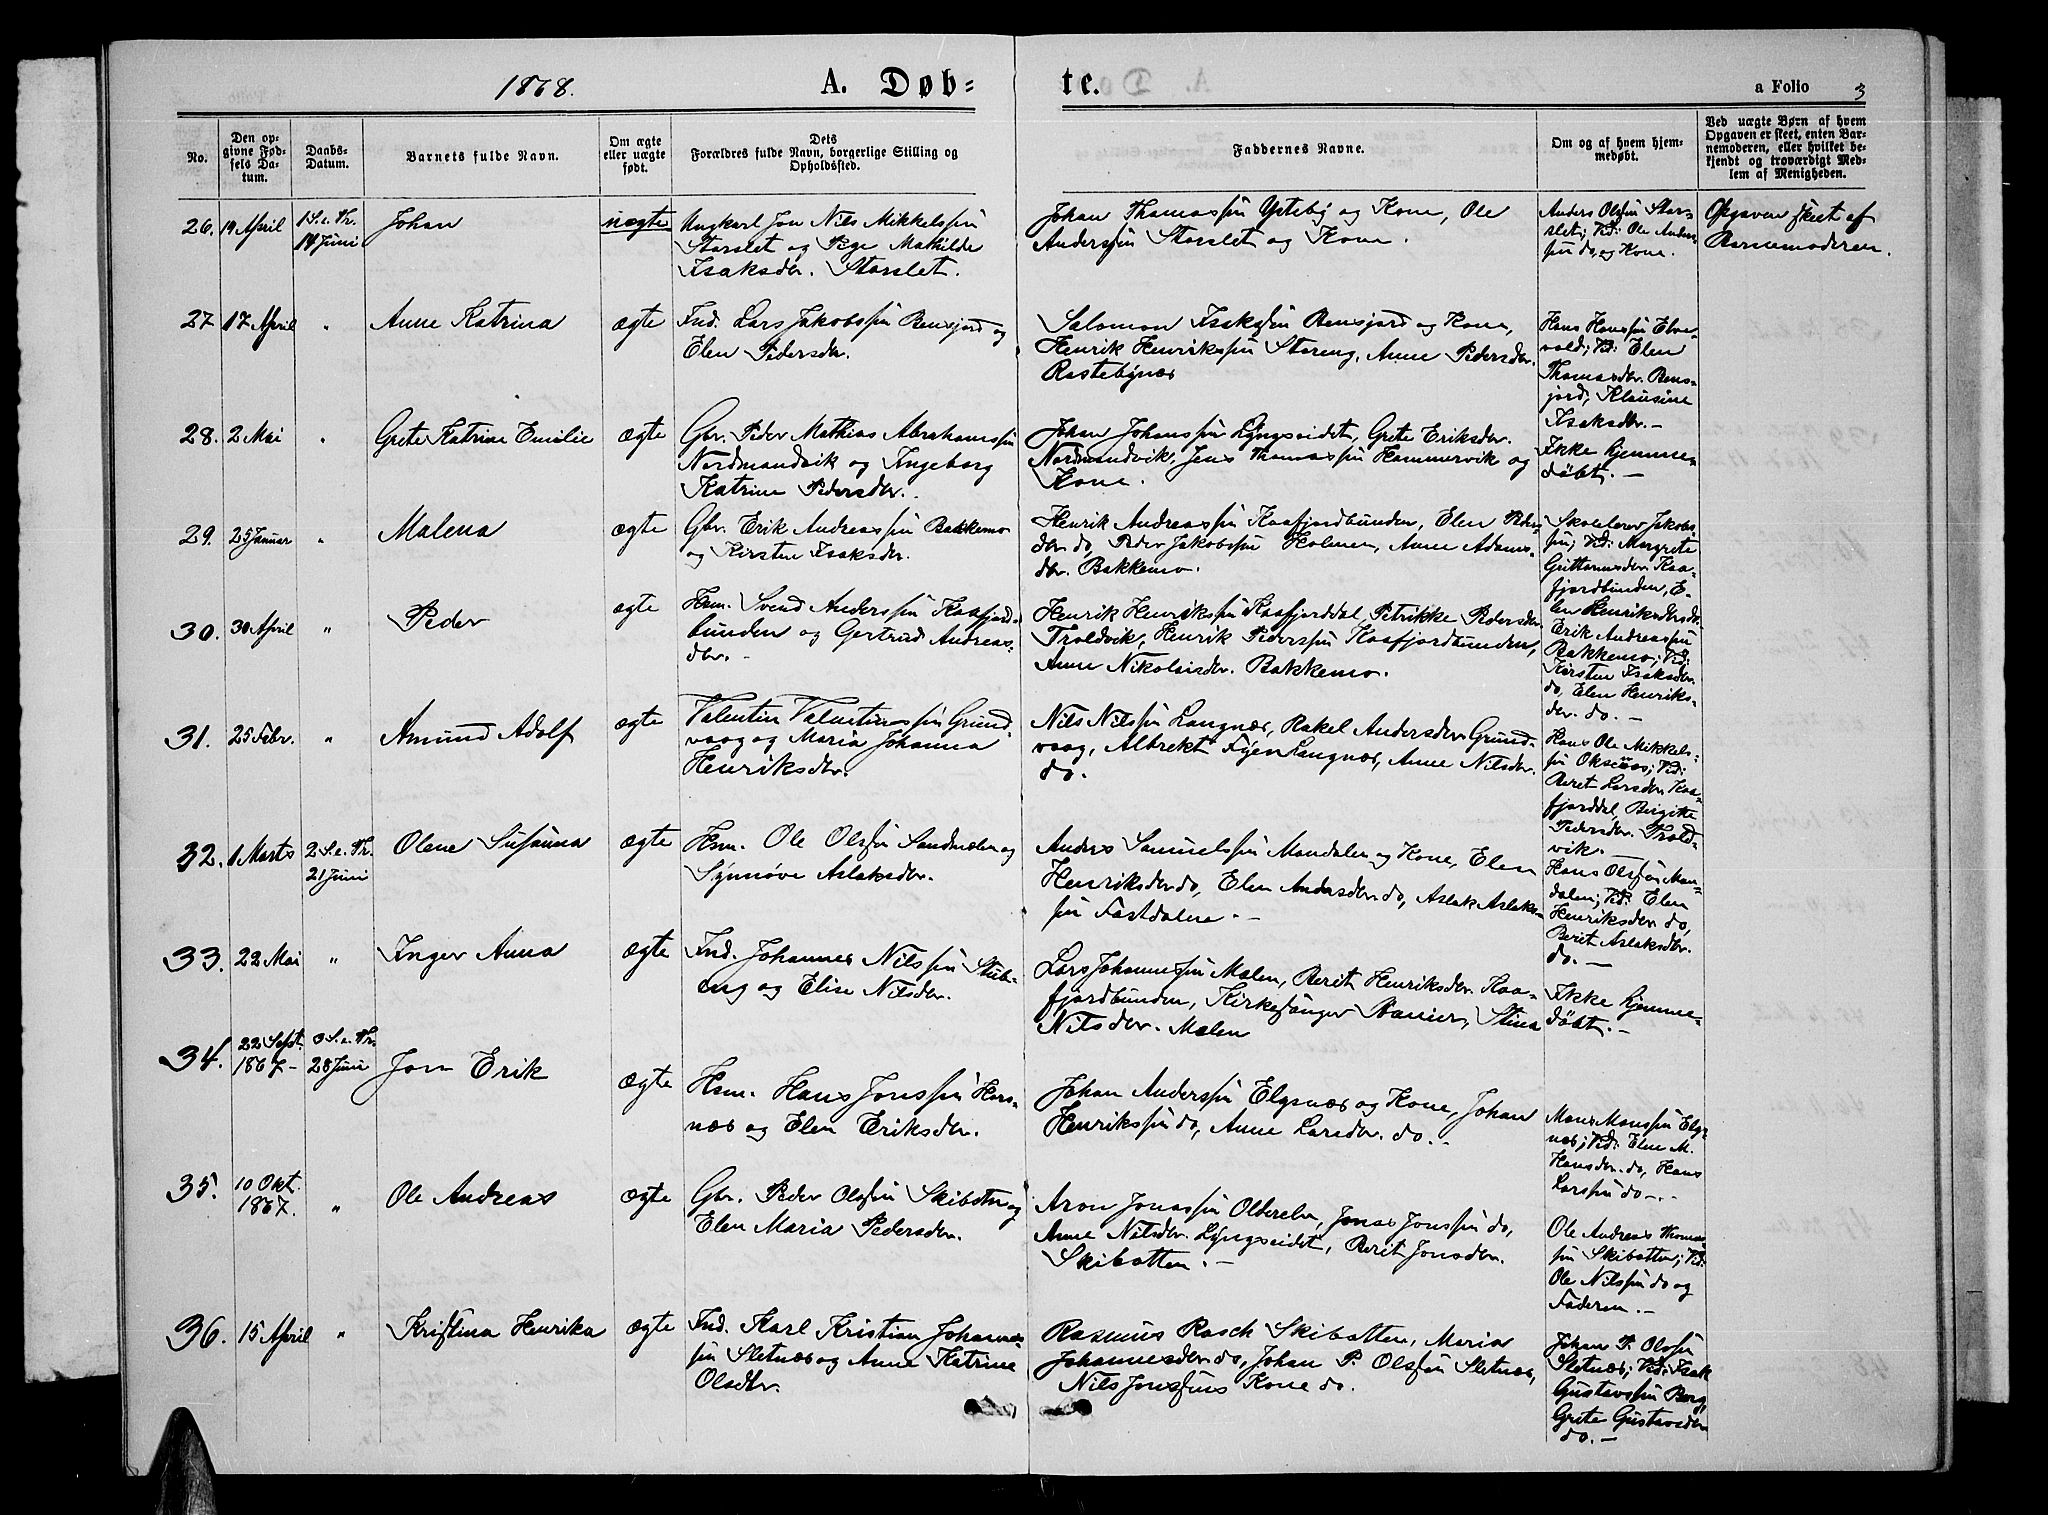 1868. A. Døb- te. a Folio 3
No.
Den op-
givne Fød-
sels Da-
tum.
Daabs-
Datum.
Barnets fulde Navn.
Om ægte
eller uægte
født.
Dets
Forældres fulde Navn, borgerlige Stilling og
Opholdssted.
Faddernes Navne.
Om og af hvem hjem-
medøbt.
Ved uægte Børn af hvem
Opgaven er skeet, enten Bar-
nemoderen, eller hvilket be-
kjendt og troværdigt Med-
lem af Menigheden.
26. 19 April
1 S. e. Tr.
14 Juni
Johan
uægte
Ungkarl Jon Nils Mikkelssøn
Storslet og Pige Mathilde
Isaksdr. Storslet.
Johan Thomassøn Yttebÿ og Kone, Ole
Anderssøn Storslet og Kone.
Anders Olssøn Stor-
slet; Vid: Ole Anders-
søn do, og Kone.
Opgaven skeet af
Barnemoderen.
27 17 April "
Anne Katrina
ægte
Ind. Lars Jakobssøn Bensjord og
Elen Pedersdr.
Salomon Isakssøn Bensjord og Kone,
Henrik Henrikssøn Storeng, Anne Pedersdr.
Rastebÿnæs
Hans Hanssøn Elve-
vold; Vid: Elen
Thomasdr. Bens-
jord, Klausine
Isaksdr. –
28. 2 Mai "
Grete Katrine Emilie
ægte
Gbr. Peder Mathias Abrahamssøn
Nordmandvik og Ingeborg
Katrine Pedersdr.
Johan Johanssøn Lÿngseidet, Grete Eriksdr.
Nordmandvik, Jens Thomassøn Hammervik og
Kone.
Ikke hjemme-
døbt. –
29. 25 Januar "
Malena
ægte
Gbr. Erik Andreassøn Bakkemo
og Kirsten Isaksdr.
Henrik Andreassøn Kaafjordbunden, Elen Peders-
der do, Peder Jakobssøn Holmen, Anne Adams-
dr. Bakkemo.
Skolelærer Jakobs-
søn; Vid: Margrete
Kaa-
fjordbunden, E-
len Henriksdr do.
30. 30 April "
Peder
ægte
Hsm. Svend Anderssøn Kaafjord-
bunden og Gertrud Andreas-
dr. –
Henrik Henrikssøn Kaafjorddal, Petrikke Pedersdr.
Troldvik, Henrik Pederssøn Kaafjordbunden,
Anne Nikolaisdr. Bakkemo.
Erik Andreassøn
Bakkemo; Vid:
Kirsten Isaksder
do, Elen Henriks-
der. do. –
31. 25 Febr. "
Amund Adolf
ægte
Valentin Valentinssøn Grund-
vaag og Maria Johanna
Henriksdr.
Nils Nilssøn Langnæs, Rakel Andersdr Grund-
vaag, Albrekt Fÿen Langnæs, Anne Nilsdr.
do.
Hans Ole Mikkels-
søn Oksnæs; Vid:
Berit Larsder. Kaa-
fjorddal, Birgitte
Pedersder. Trold-
vik. –
32. 1 Marts
2 S. e. Tr.
21 Juni
Olene Susanna
ægte
Hsm. Ole Olssøn Sandmelen og
Sÿnnøve Aslaksdr.
Anders Samuelssøn Mandalen og Kone, Elen
Henriksder do, Elen Andersder do, Aslak Aslaks-
søn Fastdalen. –
Hans Olssøn Man-
dalen; Vid: Elen
Henriksder do,
Berit Aslaksdr.
do. –
33. 22 Mai "
Inger Anna
ægte
Ind. Johannes Nilssøn Stub-
eng og Elise Nilsdr.
Lars Johannessøn Mælen, Berit Henriksdr. Kaa-
fjordbunden, Kirkesanger Banier, Stina
Nilsder. Mælen
Ikke hjemme-
døbt. –
34. 22 Sept.
1867 –
3 S. e. Tr.
28 Juni
Jon Erik
ægte
Hsm. Hans Jonssøn Hors-
næs og Elen Eriksder.
Johan Anderssøn Elgsnæs og Kone, Johan
Henrikssøn do, Anne Larsder. do. –
Mons Monssøn Elgs-
næs; Vid: Elen M.
Hansder. do, Hans
Larssøn do –
35. 10 Okt.
1867. "
Ole Andreas
ægte
Gbr. Peder Olssøn Skibotn og
Elen Maria Pedersder.
Aron Jonassøn Olderelv, Jonas Jonssøn do,
Anne Nilsder. Lÿngseidet, Berit Jonsder.
Skibotten. –
Ole Andreas Thomas-
søn Skibotten; Vid:
Ole Nilssøn do og
Faderen. –
36. 15 April "
Kristina Henrika
ægte
Ind. Karl Kristian Johannes-
søn Sletnæs og Anne Katrine
Olsdtr.
Rasmus Rasch Skibotten, Maria
Johannesder do, Johan P. Olssøn Sletnæs,
Nils Jonssøns Kone do.
Johan P. Olssøn
Sletnæs; Vid: Isak
Gustavssøn Berg,
Grete Gustavsder
do. –